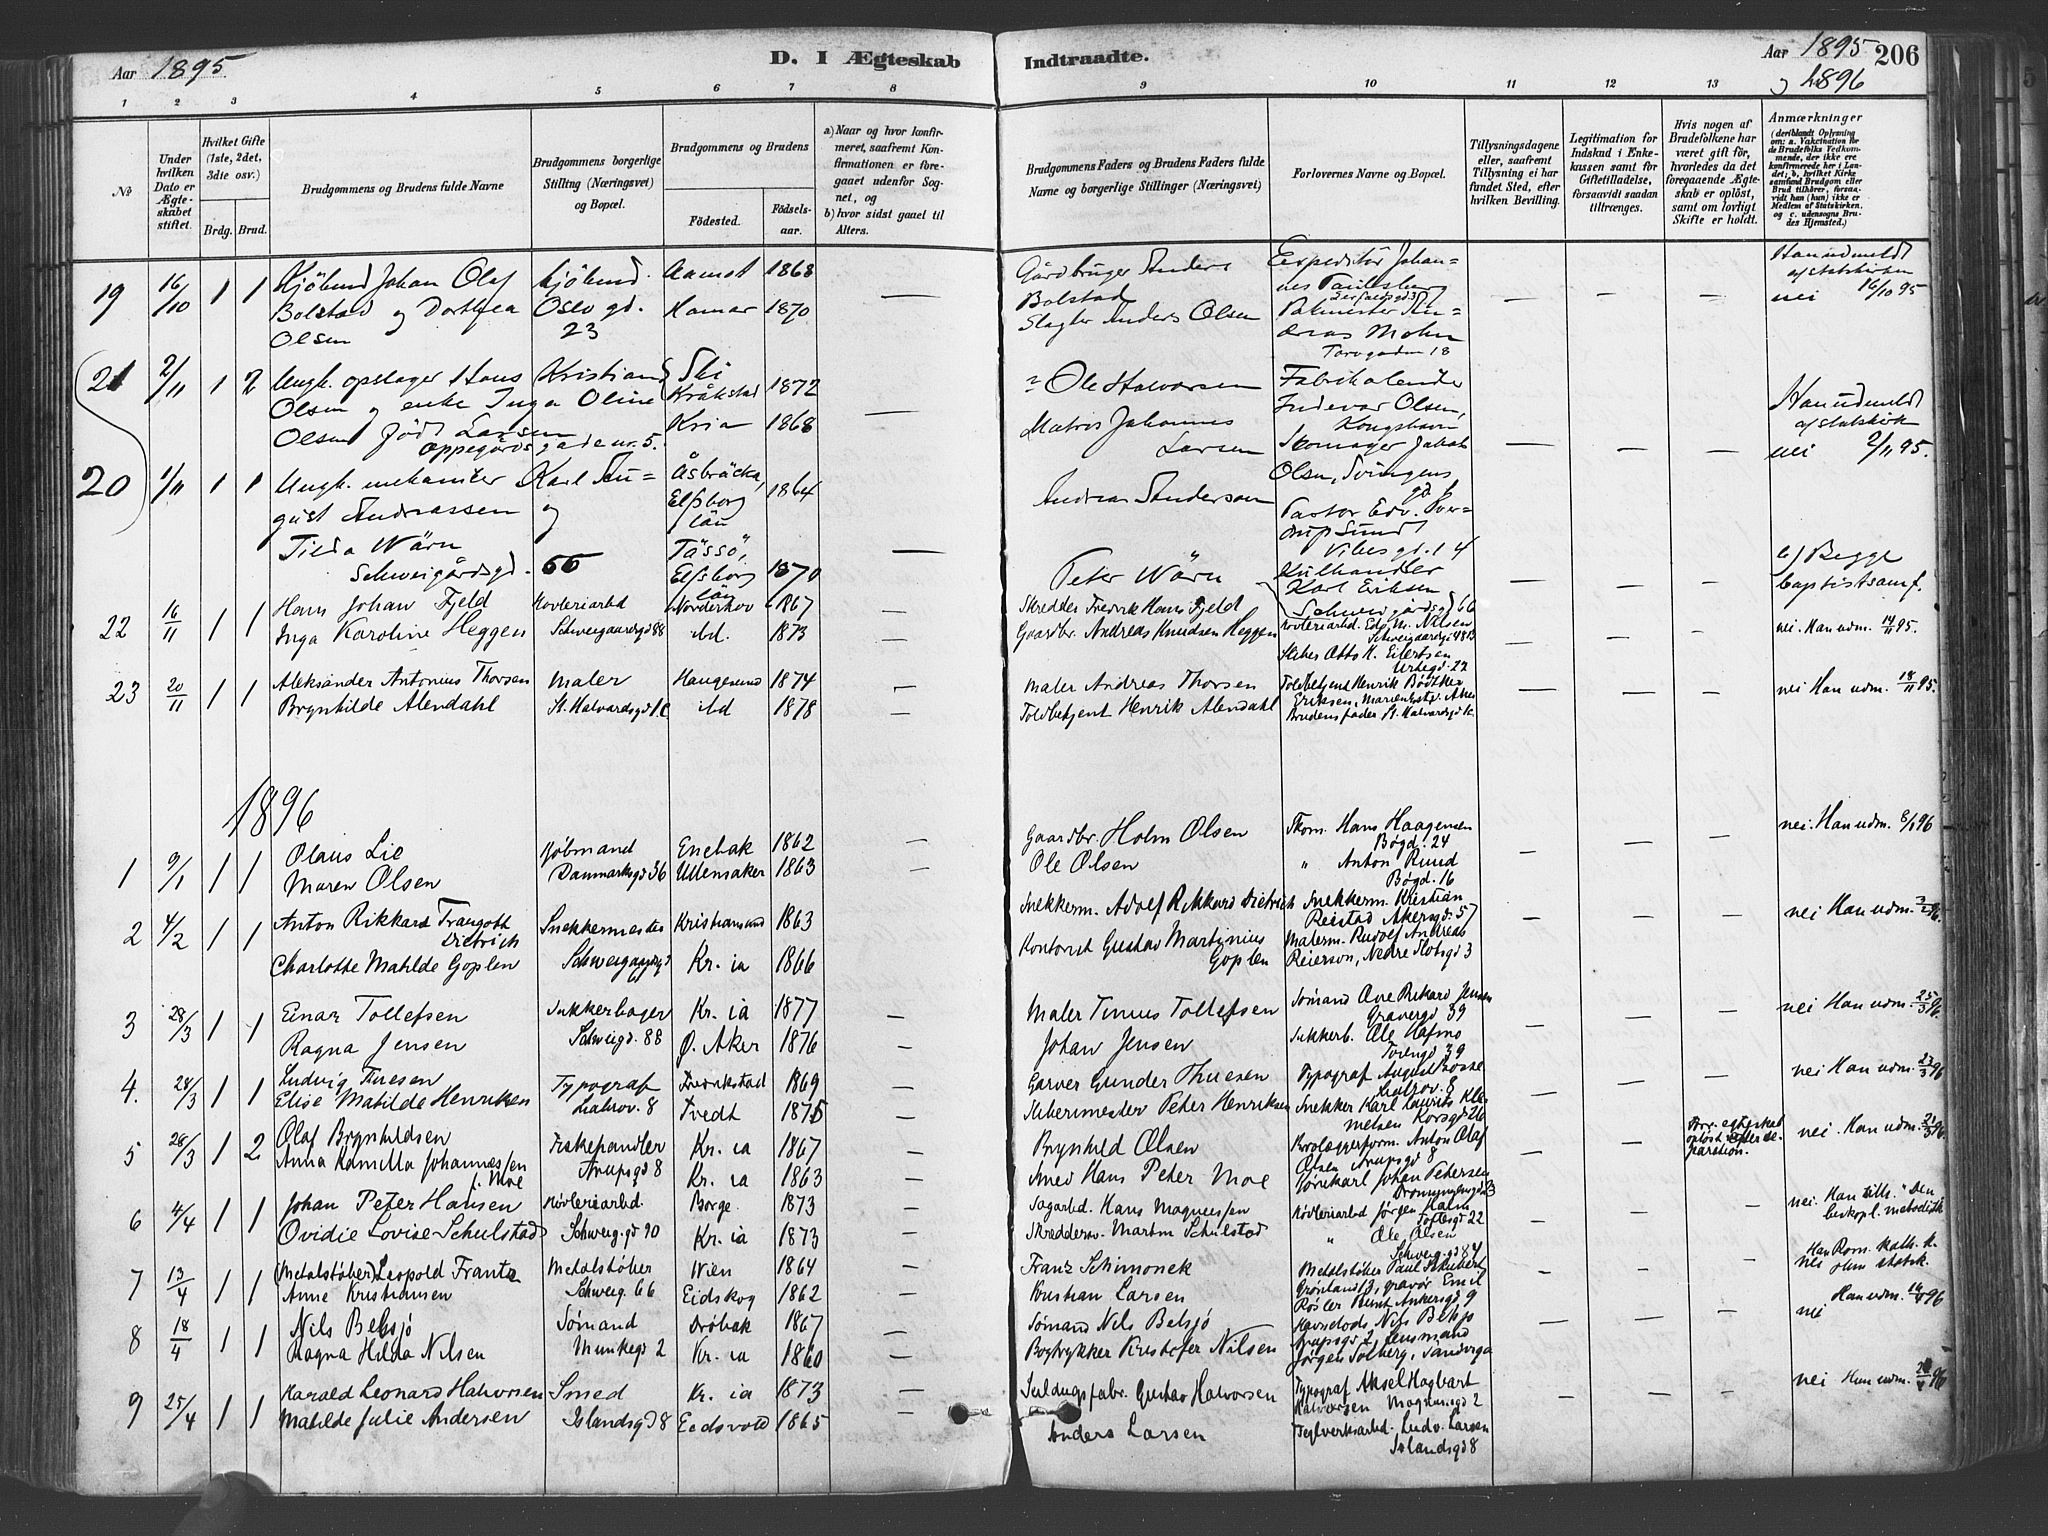 Aar 1895
D. I Ægteskab
Indtraadte.
Aar 1895
206
1896
1 2 3 4 5 6 7 8
9 10 11 12 13
No
Under hvilken Dato er Ægteskabet stiftet.
Hvilket Gifte (1ste, 2det, 3die osv.)
Brdg. Brud.
Brudgommens og Brudens fulde Navne
Brudgommens borgerlige Stilling (Næringsvei) og Bopæl.
Brudgommens og Brudens
Födested.
Födselsaar.
a) Naar og hvor konfirmeret, saafremt Konfirmationen er foregaaet udenfor Sognet, og
b) hvor sidst gaaet til Alters.
Brudgommens Faders og Brudens Faders fulde Navne og borgerlige Stillinger (Næringsvei)
Forlovernes Navne og Bopæl.
Tillysningsdagene eller, saafremt Tillysning ei har fundet Sted, efter hvilken Bevilling.
Legitimation for Indskud i Enkekassen samt for Giftetilladelse, forsaavidt saadan tiltrænges.
Hvis nogen af Brudefolkene har været gift för, hvorledes da det foregaaende Ægteskab er oplöst, samt om lovligt Skifte er holdt.
Anmærkninger
(deriblandt Oplysning om: a. Vaccination for de Brudefolks Vedkommende, der ikke ere konfirmerede her i Landet; b, hvilket Kirkesamfund Brudgom eller Brud tilhörer, forsaavidt han (hun) ikke er Medlem af Statskirken, og c. udensogns Brudes Hjemsted.)
19 16/10 1 1 Kjöbmd Johan Olaf Kjöbmd. Aamot 1868 — Gårdbruger Anders Expeditör Johan=
Bolstad og Dorthea Oslo gd. Hamar 1870 Bolstad nes Paulsberg
Olsen 23 Slagter Anders Olsen
Torvgaden 18
Han udmeldt af statskirken
nei 16/10 95
21 2/11 1 2 Ungk. opslager Hans Kristian Ski 1872 Ole Halvorsen Fabrikalender
Olsen og enke Inga Oline Kråkstad Olsen,
Olsen född Larsen Kria 1868 — Matros Johannes Larsen Kongshavn
Oppegårdsgade nr. 5. Skomager Jakob
Han udmeldt af statskirk
nei 2/11 95.
20 1/11 1 1 Ungk. mekaniker Karl Au= Åsbräcka, 1864 Andreas Anderson Olsen, Svingens gd.
gust Andreassen og Elfsborg län Pastor Edv.
Tilda Wärn Tässö, — Sund Vibes gd. 14
Schweigårdsgd. 66 Elfsborg län 1870 Peter Wärn Kulhandler Karl Eriksen
Schweigårdsgd 66
b) Begge baptistsamf.
22 16/11 1 1 Hans Johan Fjeld Høvleriarbd Norderhov 1867 Skredder Fredrik Hans Fjeld Høvleriarbd. Edv. M. Nilsen
Inga Karoline Heggen Schweigaardsgd 88 ibd. 1873 — Gaardbr. Andreas Knudsen Heggen Schweigaardsgd 48B
Otto K. Eilertsen Urtegd. 22
nei. Han udm. 14/11 95.
23 20/11 1 1 Aleksander Antonius Thorsen Maler Haugesund 1874 — Maler Andreas Thorsen Toldbetjent Henrik Bødtker
Brynhilde Alendahl St. Halvardsgd 1c ibd 1878 — Toldbetjent Henrik Alendahl Eriksen,
Brudens fader St. Halvardsgd 1c.
nei Han udm. 18/11 95.
1896
1 9/1 1 1 Olaus Lie Kjøbmand Enebak 1862 — Gaardbr. Holm Olsen Skom. Hans Haagensen Bøgd. 24
Maren Olsen Danmarksgd 36 Ullensaker 1863 Ole Olsen " Anton Ruud Bøgd. 16
nei. Han udm. 8/1 96
2 4/2 1 1 Anton Rikkard Traugott Dietrich Snekkermester Kristiansund 1863 — Snekkerm. Adolf Rikkard Dietrich Snekkerm. Kristian Reistad Akersgd. 57
Charlotte Matilde Goplen Kr. ia 1866 Kontorist Gustav Martinius Goplen Malerm. Rudolf Andreas Reierson, Nedre Slotsgd 3
nei Han udm. 3/2 96.
3 28/3 1 1 Einar Tollefsen Sukkerbager Kr. ia 1877 — Maler Tinius Tollefsen Sømand Ove Rikard Jensen Gravergd 39
Ragna Jensen Schweigd. 88 Ø. Aker 1876 — Johan Jensen Sukkerb. Ole Hafmo 39
nei Han udm. 25/3 96.
4. 28/3 1 1 Ludvig Tuesen Typograf Fredrikstad 1869 — Garver Gunder Thuesen Typograf August Losse Lakrov. 8
Elise Matilde Henriksen Lakrov. 8 Tvedt 1875 — Skibermester Peter Henriksen Snekker Karl Laurits Klemetsen Korsgd 26
nei Han udm. 23/3 96
5 28/3 1 2 Olaf Brynhildsen Fiskehandler Kr. ia 1867 — Brynhild Olsen Brolæggerform. Anton Olaf Olsen Arupsgd 8
Anna Kamilla Johannessen f. Moe Arupsgd 8 Kr. ia 1863 — Hans Peter Moe Johan Petersen
Forr. egteskab opløst efter separation.
nei. Han udm. 96.
6 4/4 1 1 Johan Peter Hansen Høvleriarbd. Borge 1873 — Sagarbd. Hans Magnussen Høvleriarbd Jørgen Holm Toftesgd 22
Ovidie Lovise Schulstad Schweig.gd 90 Kr. ia 1873 Skredderm. Martin Schulstad " Ole Olsen Schweig.gd 84
nei. Han tilh. "Den biskopl. metodistk
7 13/4 1 1 (Metalstøber) Leopold Frantz Metalstøber Wien 1864 — Franz Schimonek Metalstøber Paul Schubert Grønland 13, gravør Emil
Anne Kristiansen Schweig. 66 Eidskog 1862 Kristian Larsen Røsler Bernt Ankersgd 9
Han Rom. kath. k.
nei Hun statsk.
8 18/4 1 1 Nils Belsjø Sømand Drøbak 1867 — Sømand Nils Belsjø Nils Belsjø
Ragna Hilda Nilsen Munkegd 2 Kr. ia 1860 — Bogtrykker Kristofer Nilsen Arupsgd 2, Lensmand Jørgen Solberg, Sandviga
nei Han udm. 16/4 96
9 25/4 1 1 Harald Leonard Halvorsen Smed Kr. ia 1873 — Guldlugsfabr. Gustav Halvorsen Typograf Aksel Hagbart Halvorsen Magnusgd 2
Matilde Julie Andersen Islandsgd 8 Eidsvold 1865 — Anders Larsen Teglverksarbd. Ludv. Larsen Islandsgd 8
nei Han udm. 96